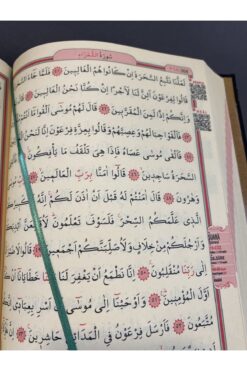 سُورَةُ الشُّعَرَاءِ
لَعَلَّنَا نَتَّبِعُ السَّحَرَةَ اِنْ كَانُوا هُمُ الْغَالِبِينَ ﴿٤٠﴾ فَلَمَّا جَاءَ السَّحَرَةُ
قَالُوا لِفِرْعَوْنَ اَئِنَّ لَنَا لَاَجْرًا اِنْ كُنَّا نَحْنُ الْغَالِبِينَ ﴿٤١﴾ قَالَ نَعَمْ
وَاِنَّكُمْ اِذًا لَمِنَ الْمُقَرَّبِينَ ﴿٤٢﴾ قَالَ لَهُمْ مُوسٰٓى اَلْقُوا مَٓا اَنْتُمْ
فَاَلْقَوْا حِبَالَهُمْ وَعِصِيَّهُمْ وَقَالُوا بِعِزَّةِ فِرْعَوْنَ اِنَّا لَنَحْنُ
فَاَلْقٰى مُوسٰى عَصَاهُ فَاِذَا هِيَ تَلْقَفُ مَا يَأْفِكُونَ
السَّحَرَةُ سَاجِدِينَ ﴿٤٦﴾ قَالُٓوا اٰمَنَّا بِرَبِّ الْعَالَمِينَ
وَهٰرُونَ ﴿٤٨﴾ قَالَ اٰمَنْتُمْ لَهُ قَبْلَ اَنْ اٰذَنَ لَكُمْ اِنَّهُ
الَّذِي عَلَّمَكُمُ السِّحْرَ فَلَسَوْفَ تَعْلَمُونَ
وَاَرْجُلَكُمْ مِنْ خِلَافٍ وَلَاُصَلِّبَنَّكُمْ اَجْمَعِينَ
اِلٰى رَبِّنَا مُنْقَلِبُونَ ﴿٥٠﴾ اِنَّا نَطْمَعُ اَنْ يَغْفِرَ لَنَا خَطَايَانَٓا اَنْ
اَوَّلَ الْمُؤْمِنِينَ ﴿٥١﴾ وَاَوْحَيْنَٓا اِلٰى مُوسٰٓى اَنْ اَسْرِ بِعِبَادِٓي
مُتَّبَعُونَ ﴿٥٢﴾ فَاَرْسَلَ فِرْعَوْنُ فِي الْمَدَٓائِنِ حَاشِرِينَ